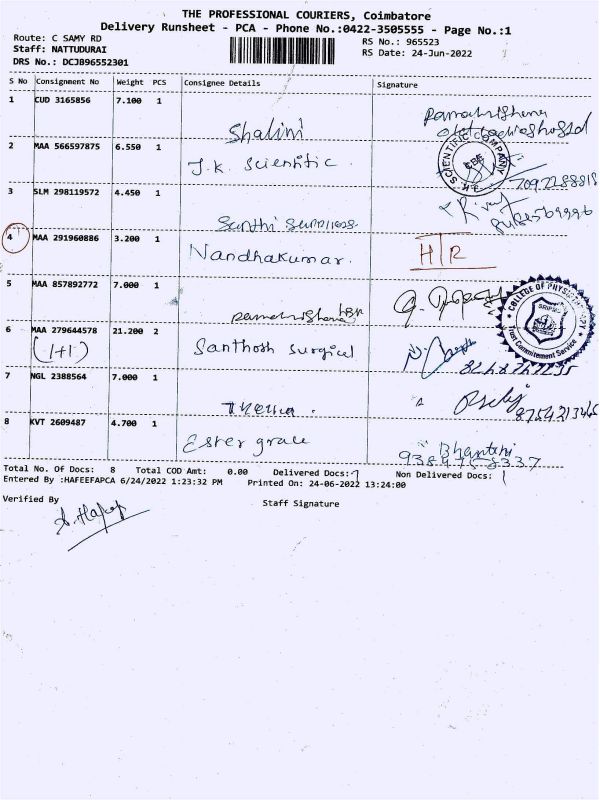 THE PROFESSIONAL COURIERS, Coimbatore
Delivery Runsheet - PCA - Phone No.:0422-3505555 - Page No.:1
Route: C SAMY RD
RS No.: 965523
Staff: NATTUDURAI
RS Date: 24-Jun-2022
DRS No.: DCJB96552301
S No Consignment No Weight PCS Consignee Details Signature
1 CUD 3165856 7.100 1
Shalini
2 MAA 566597875 6.550 1
J.K. Scientific.
SCIENTIFIC COMPANY
CBE
7092288818
3 SLM 298119572 4.450 1
4 MAA 291960886 3.200 1
Nandhakumar.
H/R
5 MAA 857892772 7.000 1
COLLEGE OF PHYSIOTHERAPY
Trust Commitement Service
6 MAA 279644578 21.200 2
(1+1)
Santhosh Surgical
7 NGL 2388564 7.000 1
8 KVT 2609487 4.700 1
Ester grace
Total No. Of Docs: 8 Total COD Amt: 0.00 Delivered Docs: 7 Non Delivered Docs: 1
Entered By :HAFEEFAPCA 6/24/2022 1:23:32 PM Printed On: 24-06-2022 13:24:00
Verified By
Staff Signature